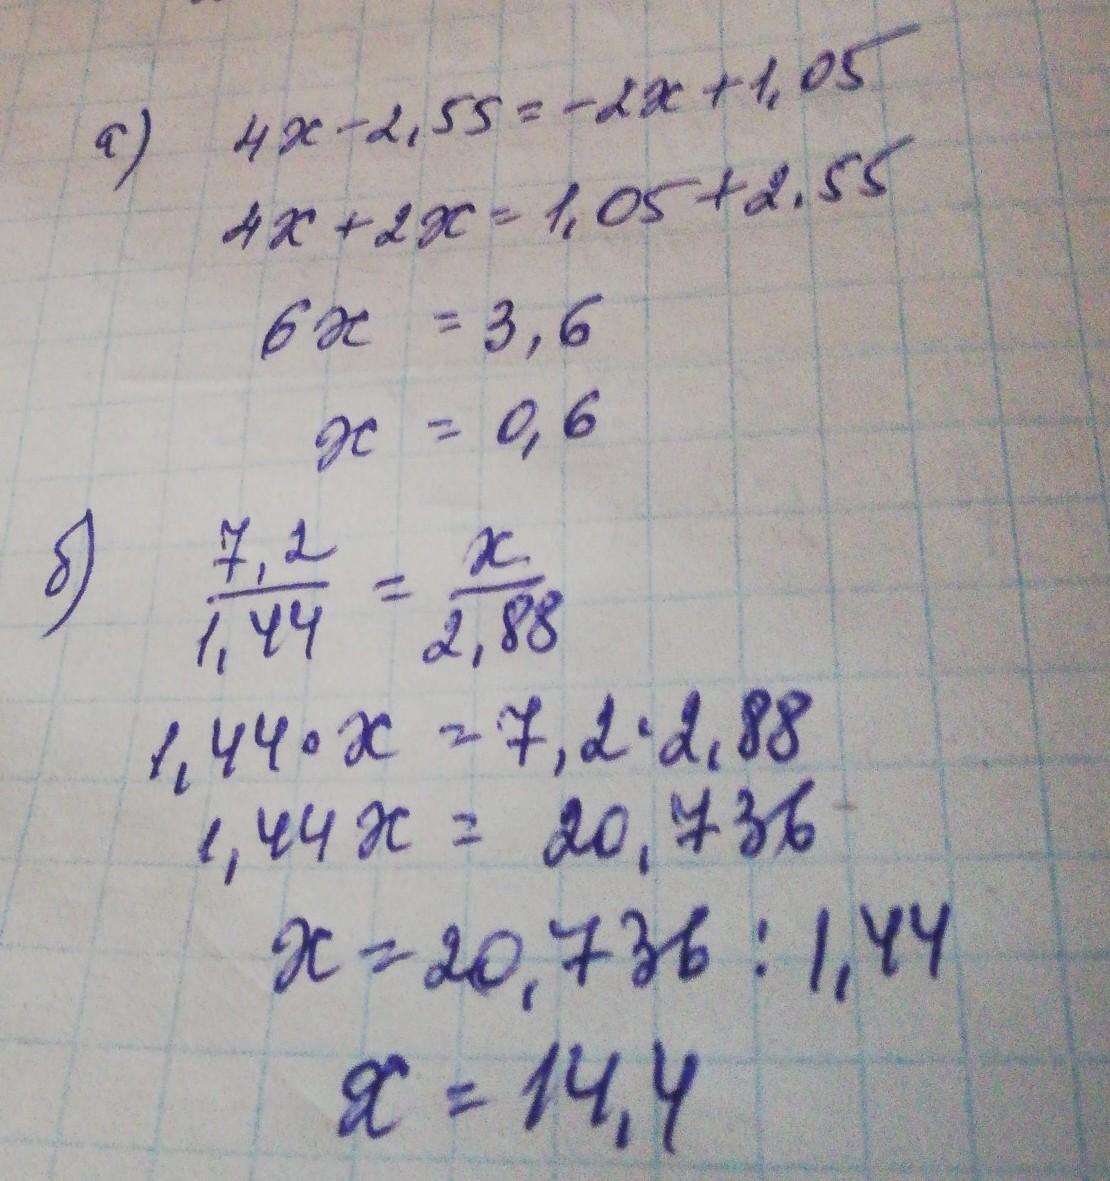 а) 4x-2,55=-2x+1,05
4x+2x=1,05+2.55
6x = 3,6
x = 0,6
б) 7,2/1,44 = x/2,88
1,44•x = 7,2·2,88
1,44x = 20,736
x = 20,736 : 1,44
x = 14,4